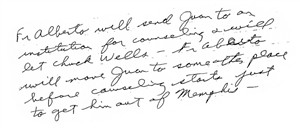 Fr Alberto will send Juan to an
institution for counseling & will
let Chuck Wells – Fr Alberto
will move Juan to some other place
before counseling starts just
to get him out of Memphis –